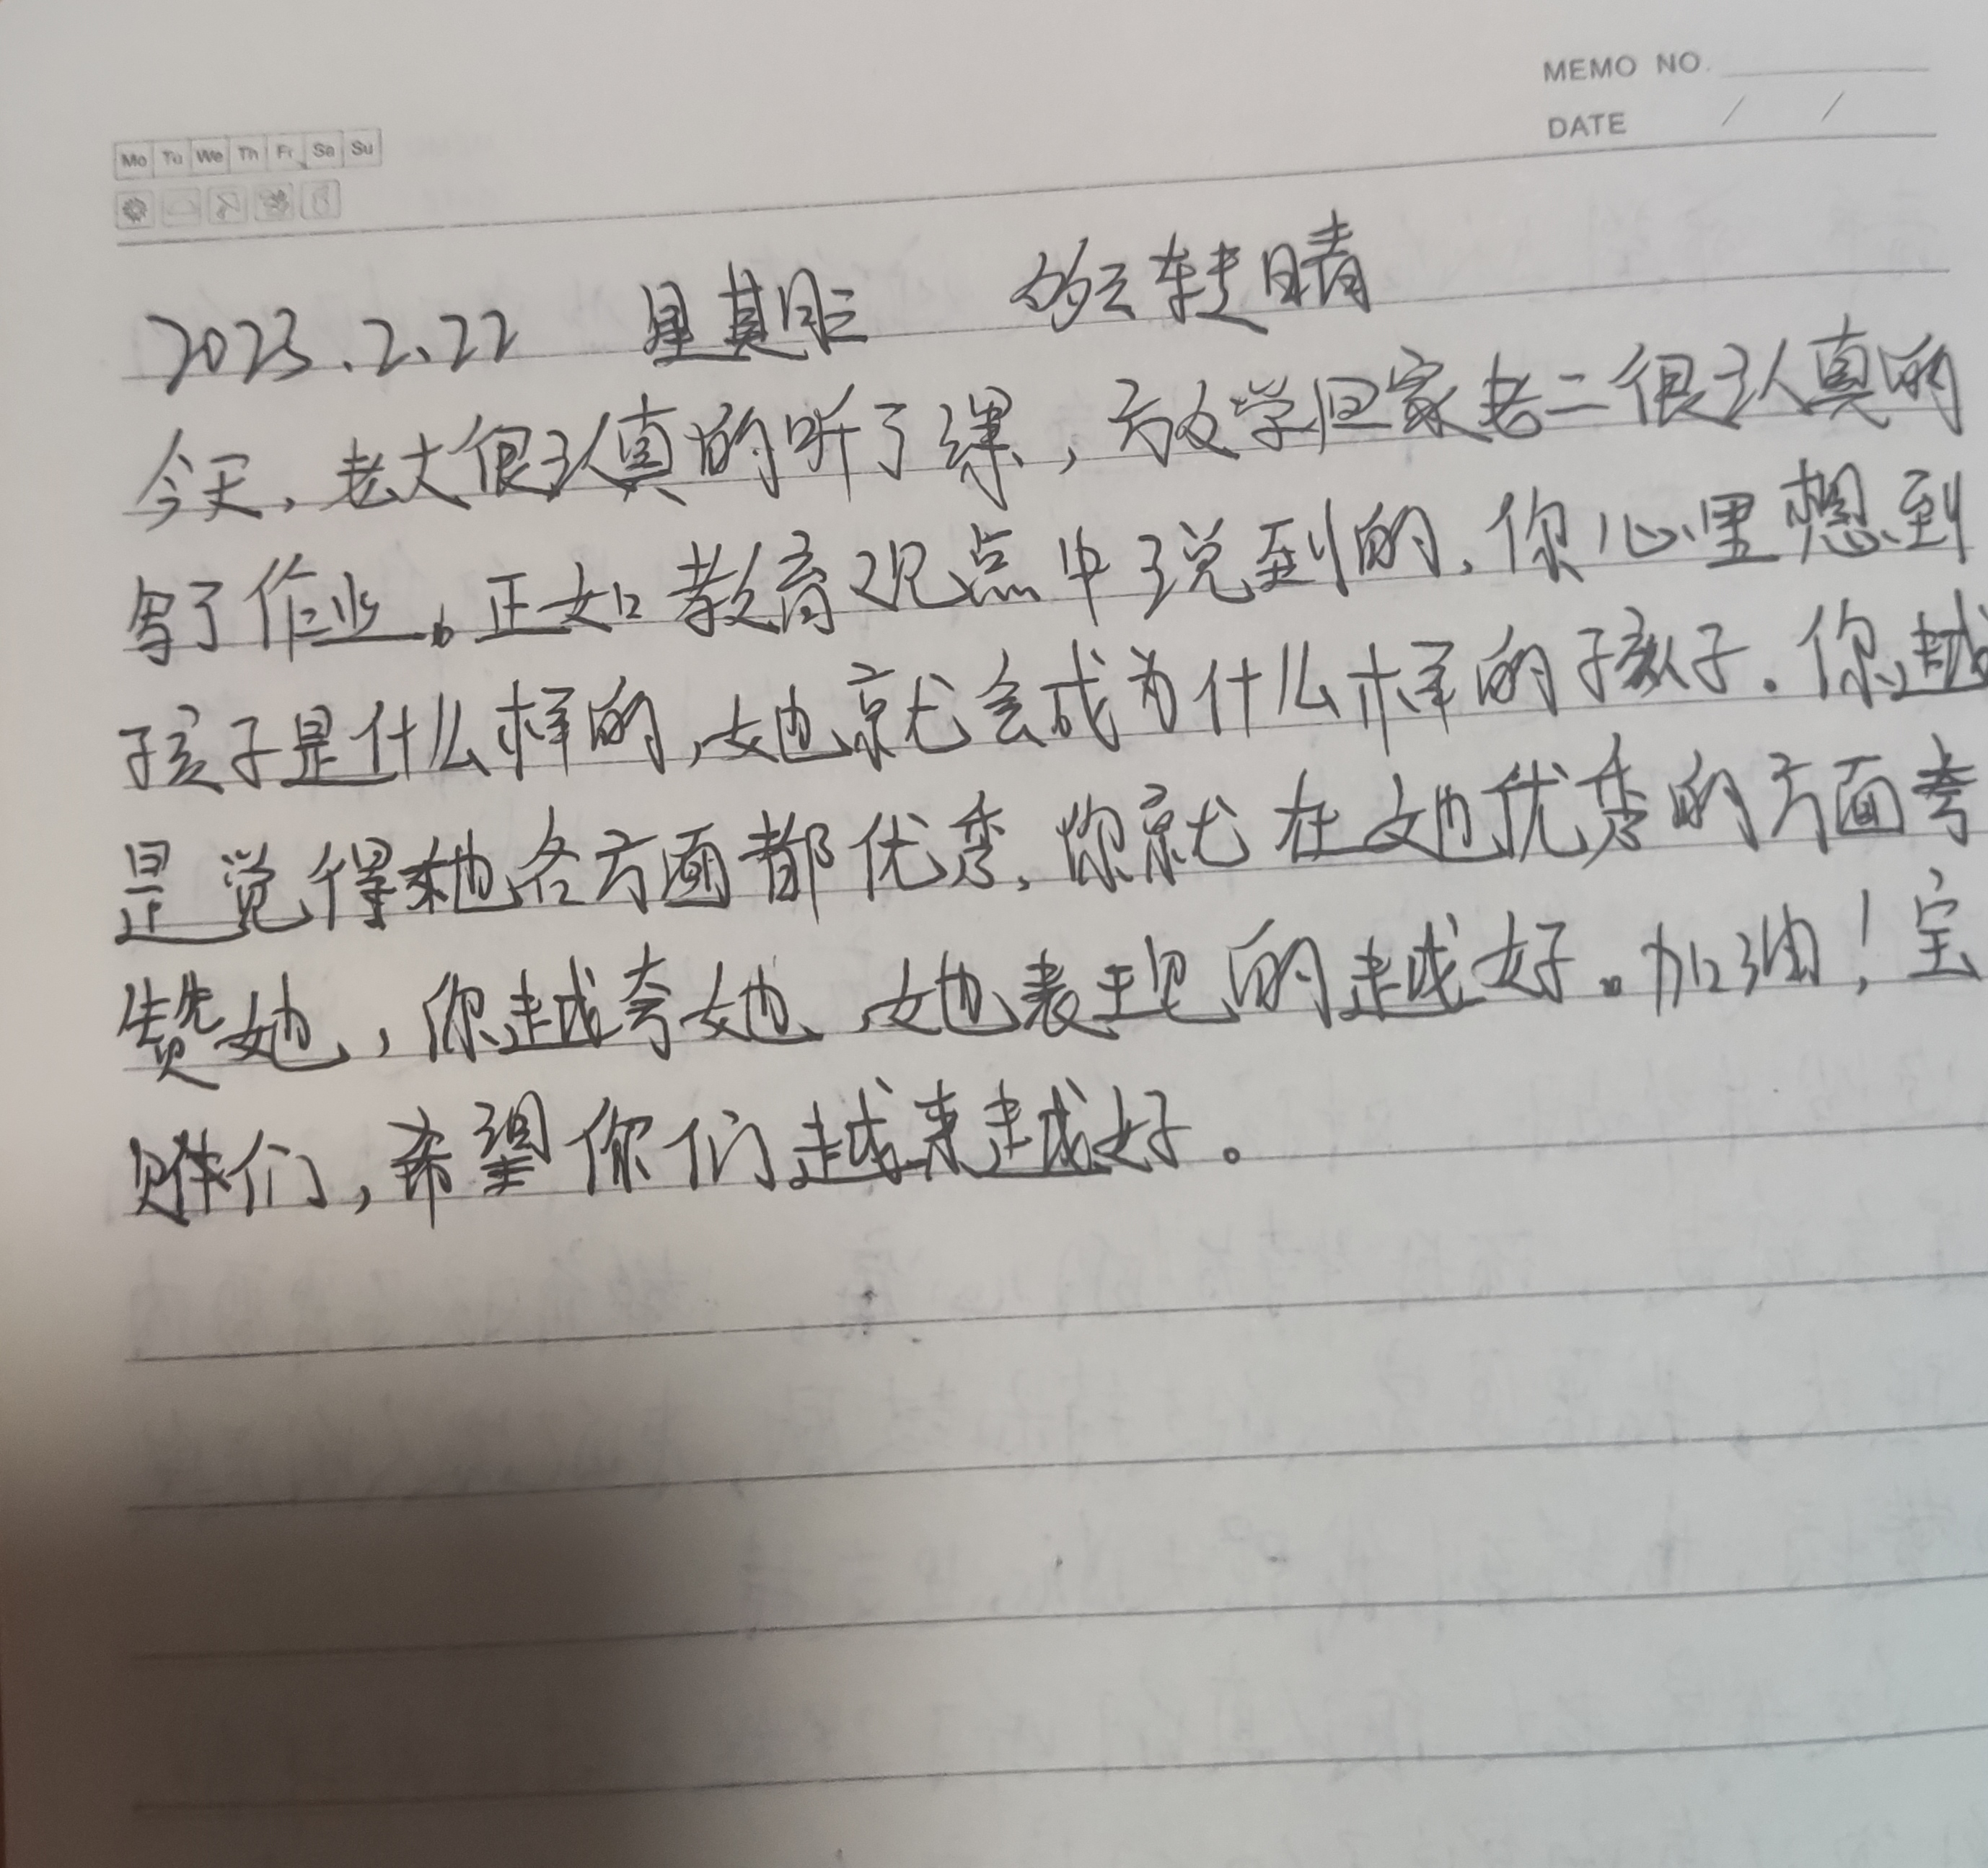 MEMO NO.
DATE / /
Mo Tu We Th Fr Sa Su
2023.2.22 星期三 多云转晴
今天,老大很认真的听了课,放学回家老二很认真的
写了作业。正如教育观点中说到的,你心里想到
孩子是什么样的,她就会成为什么样的孩子。你越
是觉得她各方面都优秀,你就在她优秀的方面夸
赞她,你越夸她,她表现的越好。加油!宝
贝们,希望你们越来越好。